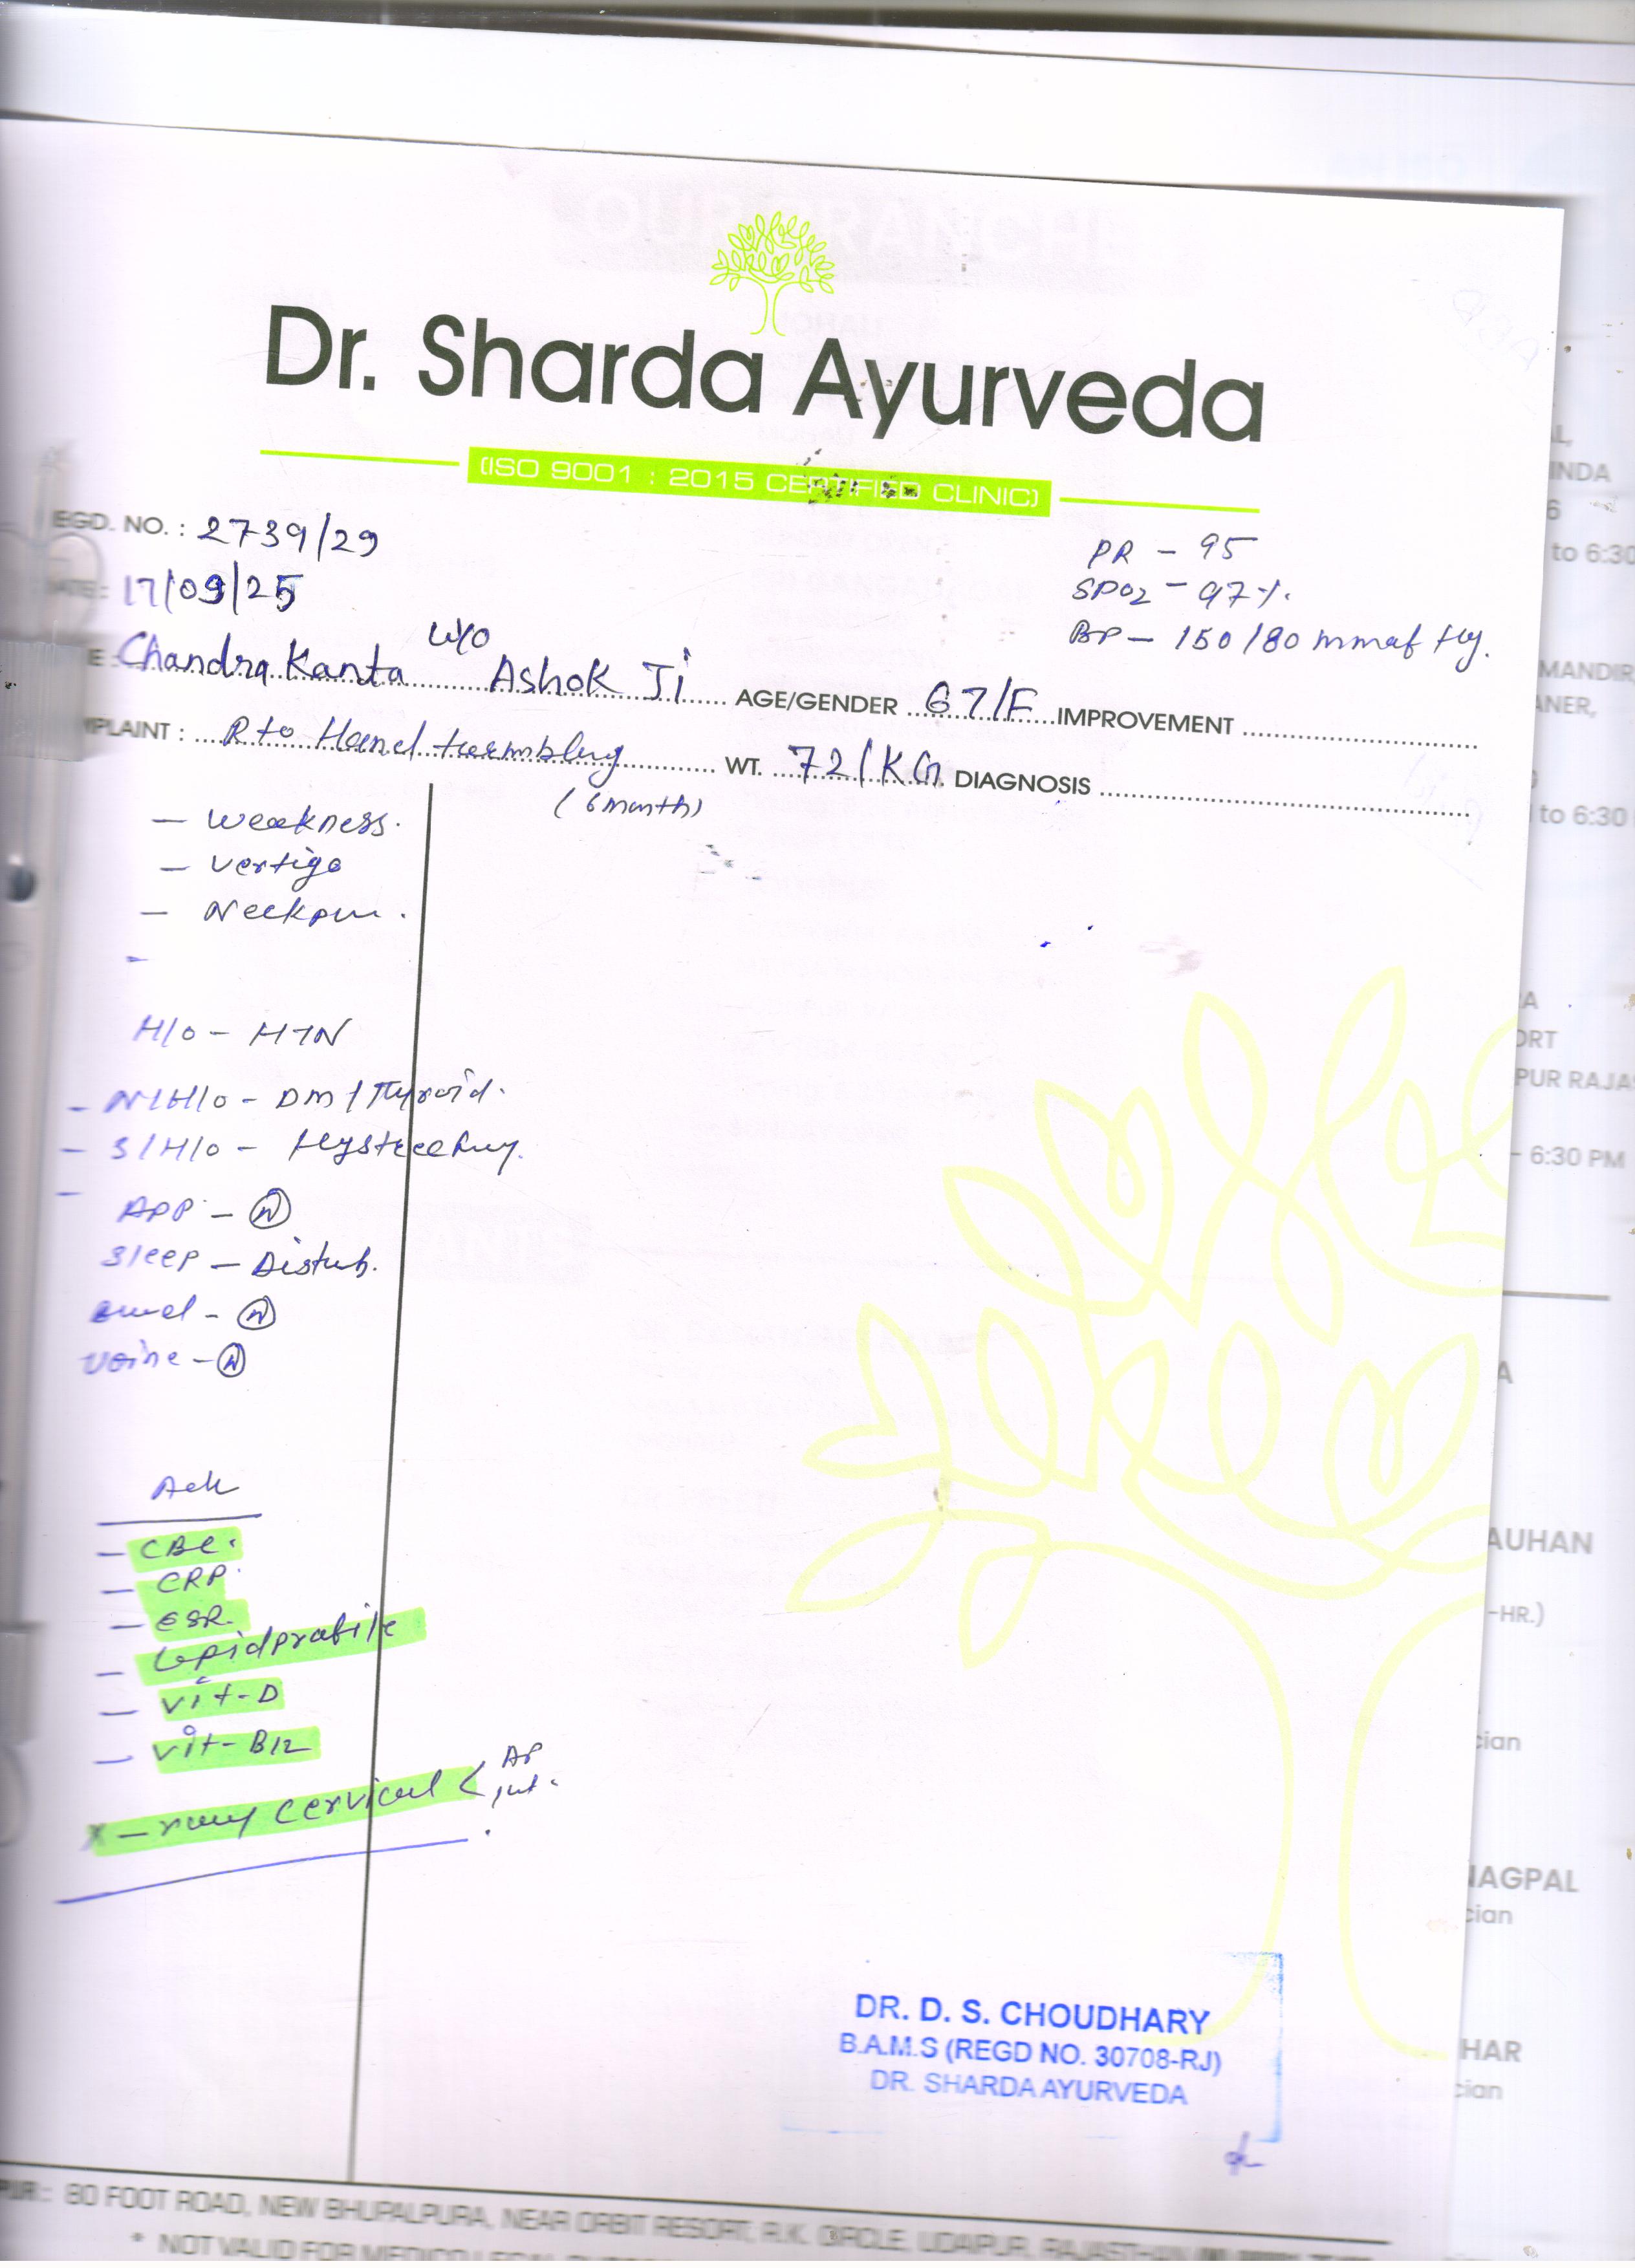 Dr. Sharda Ayurveda
(ISO 9001 : 2015 CERTIFIED CLINIC)
EGD. NO. : 2739/29
PR - 95
ATE : 17/09/25
SPO2 - 97%.
BP - 150/80 mmof Hg.
E : Chandra Kanta W/o Ashok Ji AGE/GENDER 67/F IMPROVEMENT
MPLAINT : R to Hand WT. 72/KG DIAGNOSIS
(6 month)
- Weakness.
- Vertigo
- Neck
-
H/o - HTN
- N/H/o - DM / Thyroid.
- S/H/o -
-
APP - N
Sleep - Disturb.
- N
Urine - N
- CBC.
- CRP.
- ESR.
- Lipid profile
- Vit-D
- Vit-B12
X-ray cervical < AP
DR. D. S. CHOUDHARY
B.A.M.S (REGD NO. 30708-RJ)
DR. SHARDA AYURVEDA
PUR : 80 FOOT ROAD, NEW BHUPALPURA, NEAR ORBIT RESORT, R.K. CIRCLE, UDAIPUR, RAJASTHAN
* NOT VALID FOR MEDICO LEGAL
L,
INDA
6
to 6:30
MANDIR,
ANER,
to 6:30
A
ORT
PUR RAJAS
- 6:30 PM
A
AUHAN
-HR.)
cian
NAGPAL
cian
HAR
cian